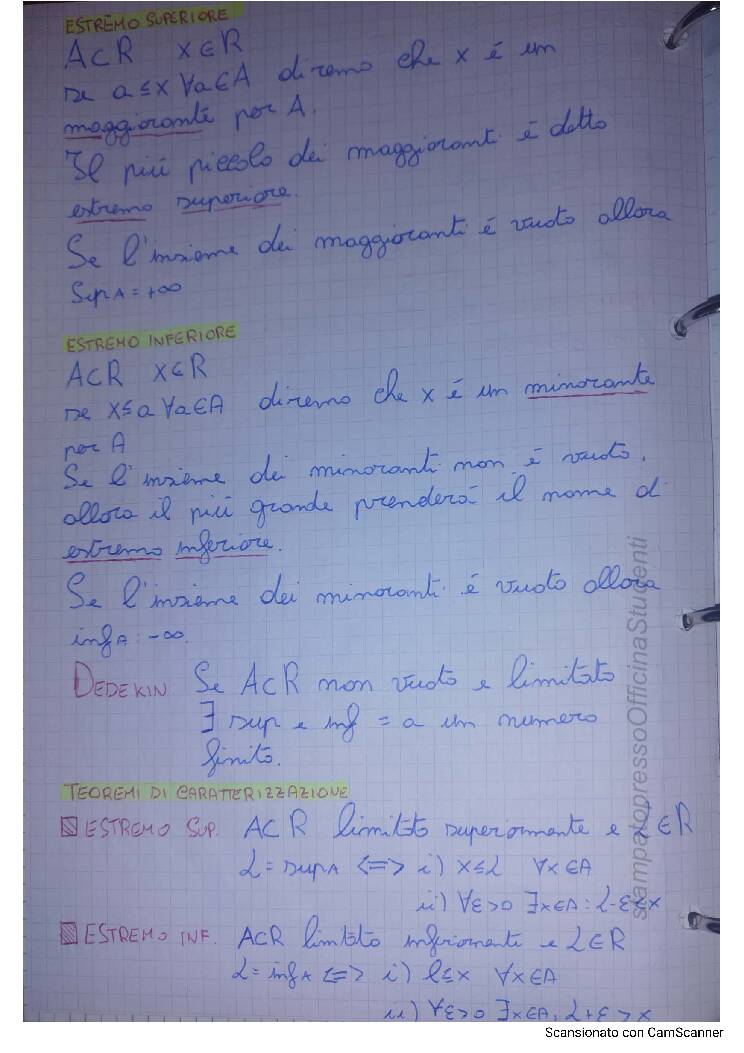 ESTREMO SUPERIORE
A⊂R x∈R
se a≤x ∀a∈A diremo che x é un
maggiorante per A.
Il piú piccolo dei maggioranti é detto
estremo superiore.
Se l'insieme dei maggioranti é vuoto allora
Sup A = +∞
ESTREMO INFERIORE
A⊂R x∈R
se x≤a ∀a∈A diremo che x é un minorante
per A
Se l'insieme dei minoranti non é vuoto,
allora il piú grande prenderá il nome di
estremo inferiore.
Se l'insieme dei minoranti é vuoto allora
inf A: -∞
DEDEKIN Se A⊂R non vuoto e limitato
∃ sup e inf = a un numero
finito.
TEOREMI DI CARATTERIZZAZIONE
ESTREMO SUP. A⊂R limitato superiormente e L∈R
L = sup A <=> i) x≤L ∀x∈A
ii) ∀ε>0 ∃x∈A: L-ε≤x
ESTREMO INF. A⊂R limitato inferiormente e L∈R
L = inf A <=> i) l≤x ∀x∈A
ii) ∀ε>0 ∃x∈A: L+ε>x
stampatopressoOfficinaStudenti
Scansionato con CamScanner